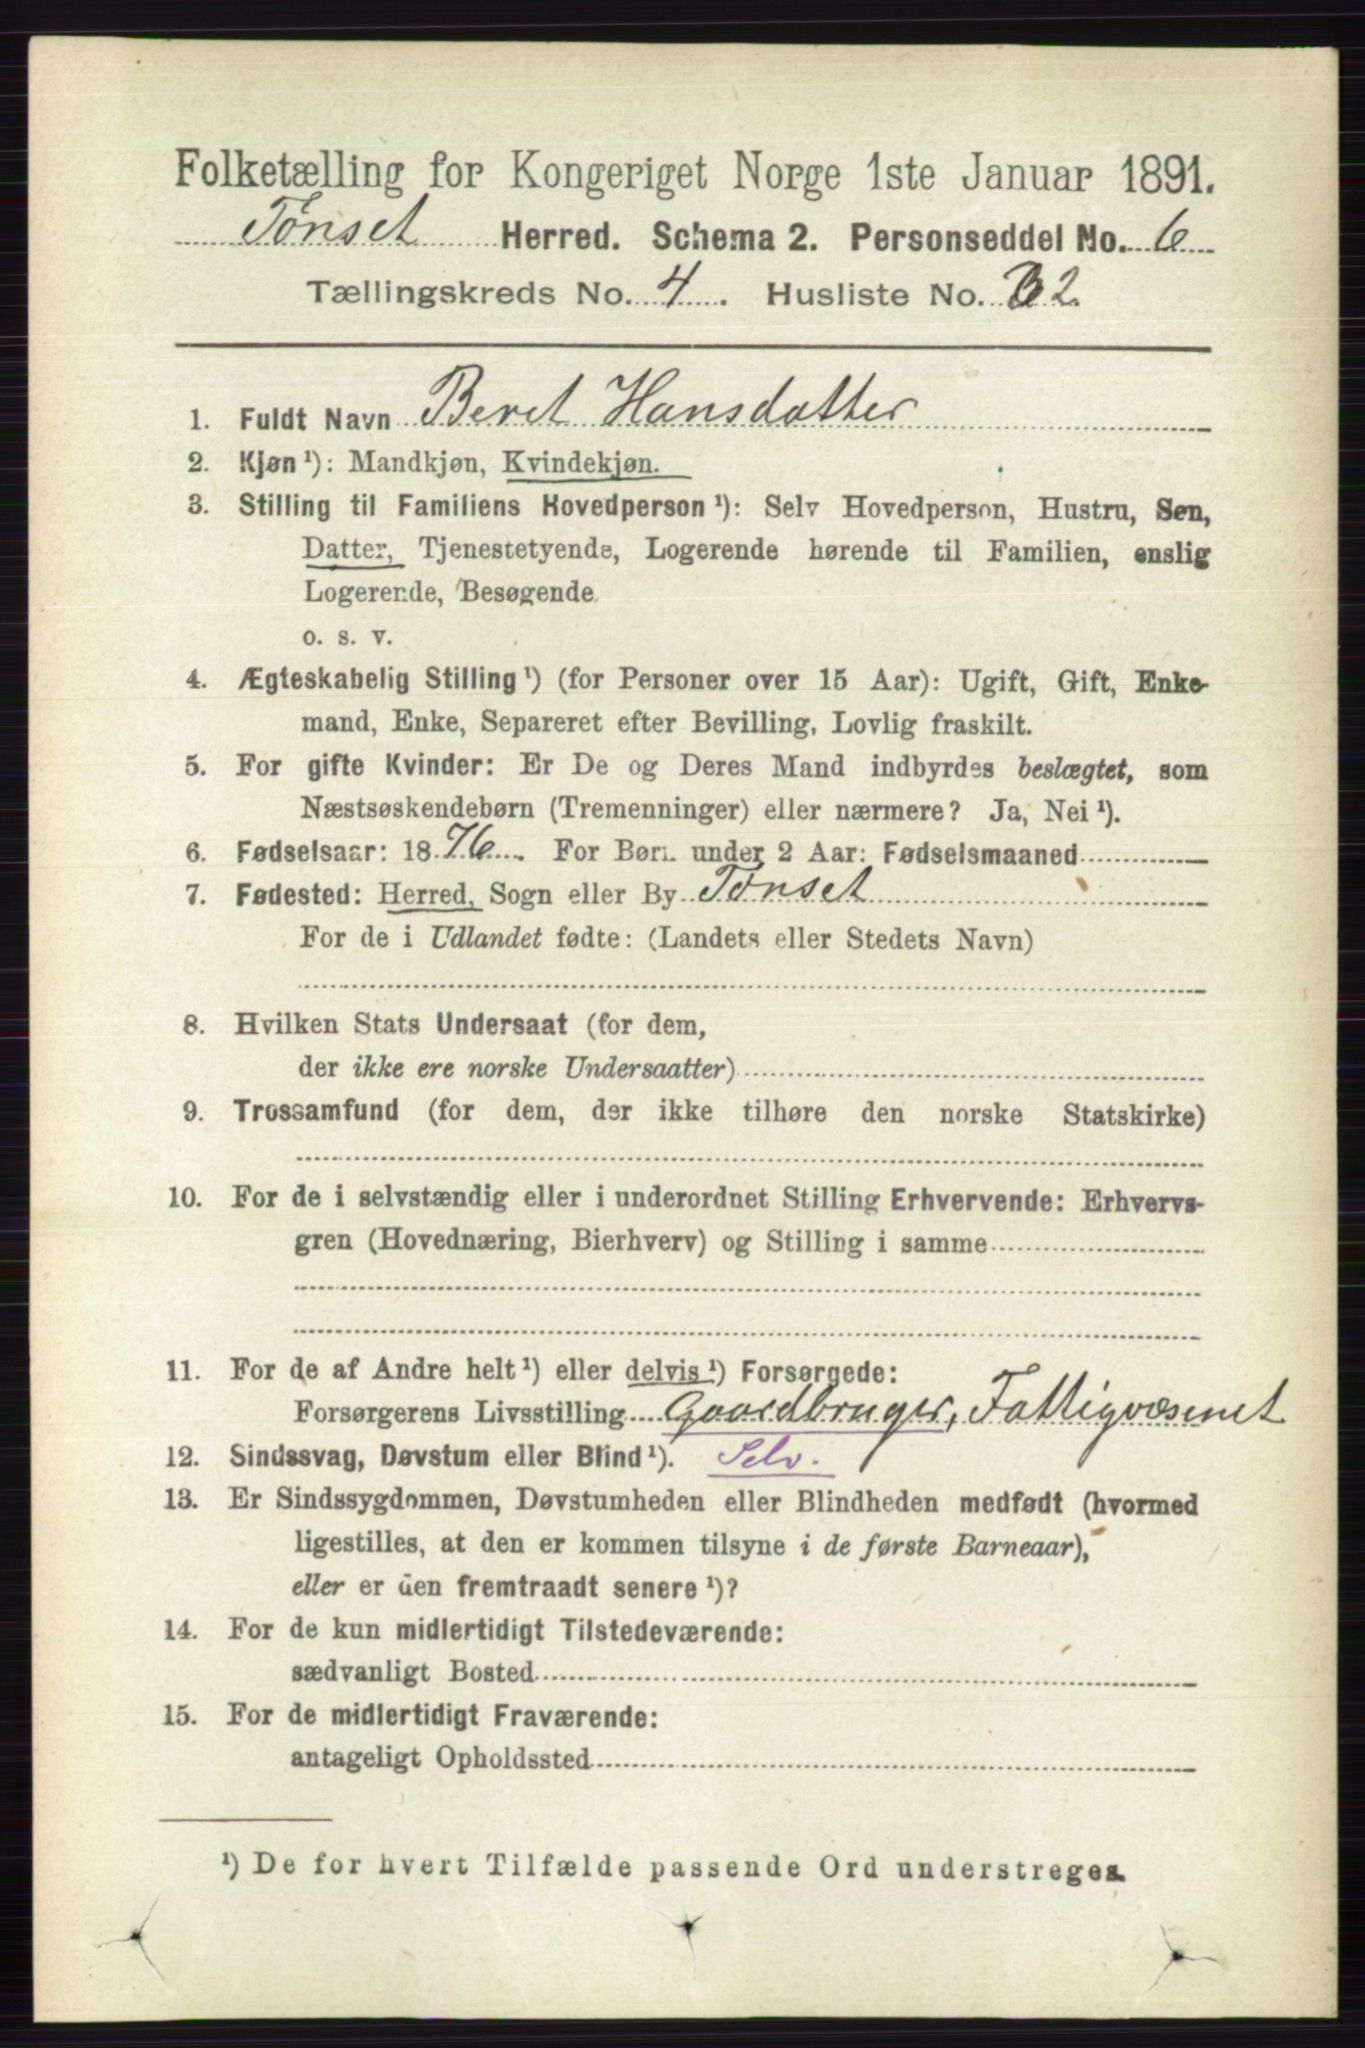 Folketælling for Kongeriget Norge 1ste Januar 1891.
Tønset Herred. Schema 2. Personseddel No. 6
Tællingskreds No. 4. Husliste No. 32.
1. Fuldt Navn Beret Hansdatter
2. Kjøn ¹): Mandkjøn, Kvindekjøn.
3. Stilling til Familiens Hovedperson ¹): Selv Hovedperson, Hustru, Søn,
Datter, Tjenestetyende, Logerende hørende til Familien, enslig
Logerende, Besøgende
o. s. v.
4. Ægteskabelig Stilling ¹) (for Personer over 15 Aar): Ugift, Gift, Enke-
mand, Enke, Separeret efter Bevilling, Lovlig fraskilt.
5. For gifte Kvinder: Er De og Deres Mand indbyrdes beslægtet, som
Næstsøskendebørn (Tremenninger) eller nærmere? Ja, Nei ¹).
6. Fødselsaar: 1876. For Børn under 2 Aar: Fødselsmaaned
7. Fødested: Herred, Sogn eller By Tønset
For de i Udlandet fødte: (Landets eller Stedets Navn)
8. Hvilken Stats Undersaat (for dem,
der ikke ere norske Undersaatter)
9. Trossamfund (for dem, der ikke tilhøre den norske Statskirke)
10. For de i selvstændig eller i underordnet Stilling Erhvervende: Erhvervs-
gren (Hovednæring, Bierhverv) og Stilling i samme
11. For de af Andre helt ¹) eller delvis ¹) Forsørgede:
Forsørgerens Livsstilling Gaardbruger, Fattigvæsenet
12. Sindssvag, Døvstum eller Blind ¹). Selv.
13. Er Sindssygdommen, Døvstumheden eller Blindheden medfødt (hvormed
ligestilles, at den er kommen tilsyne i de første Barneaar),
eller er den fremtraadt senere ¹)?
14. For de kun midlertidigt Tilstedeværende:
sædvanligt Bosted
15. For de midlertidigt Fraværende:
antageligt Opholdssted
¹) De for hvert Tilfælde passende Ord understreges.